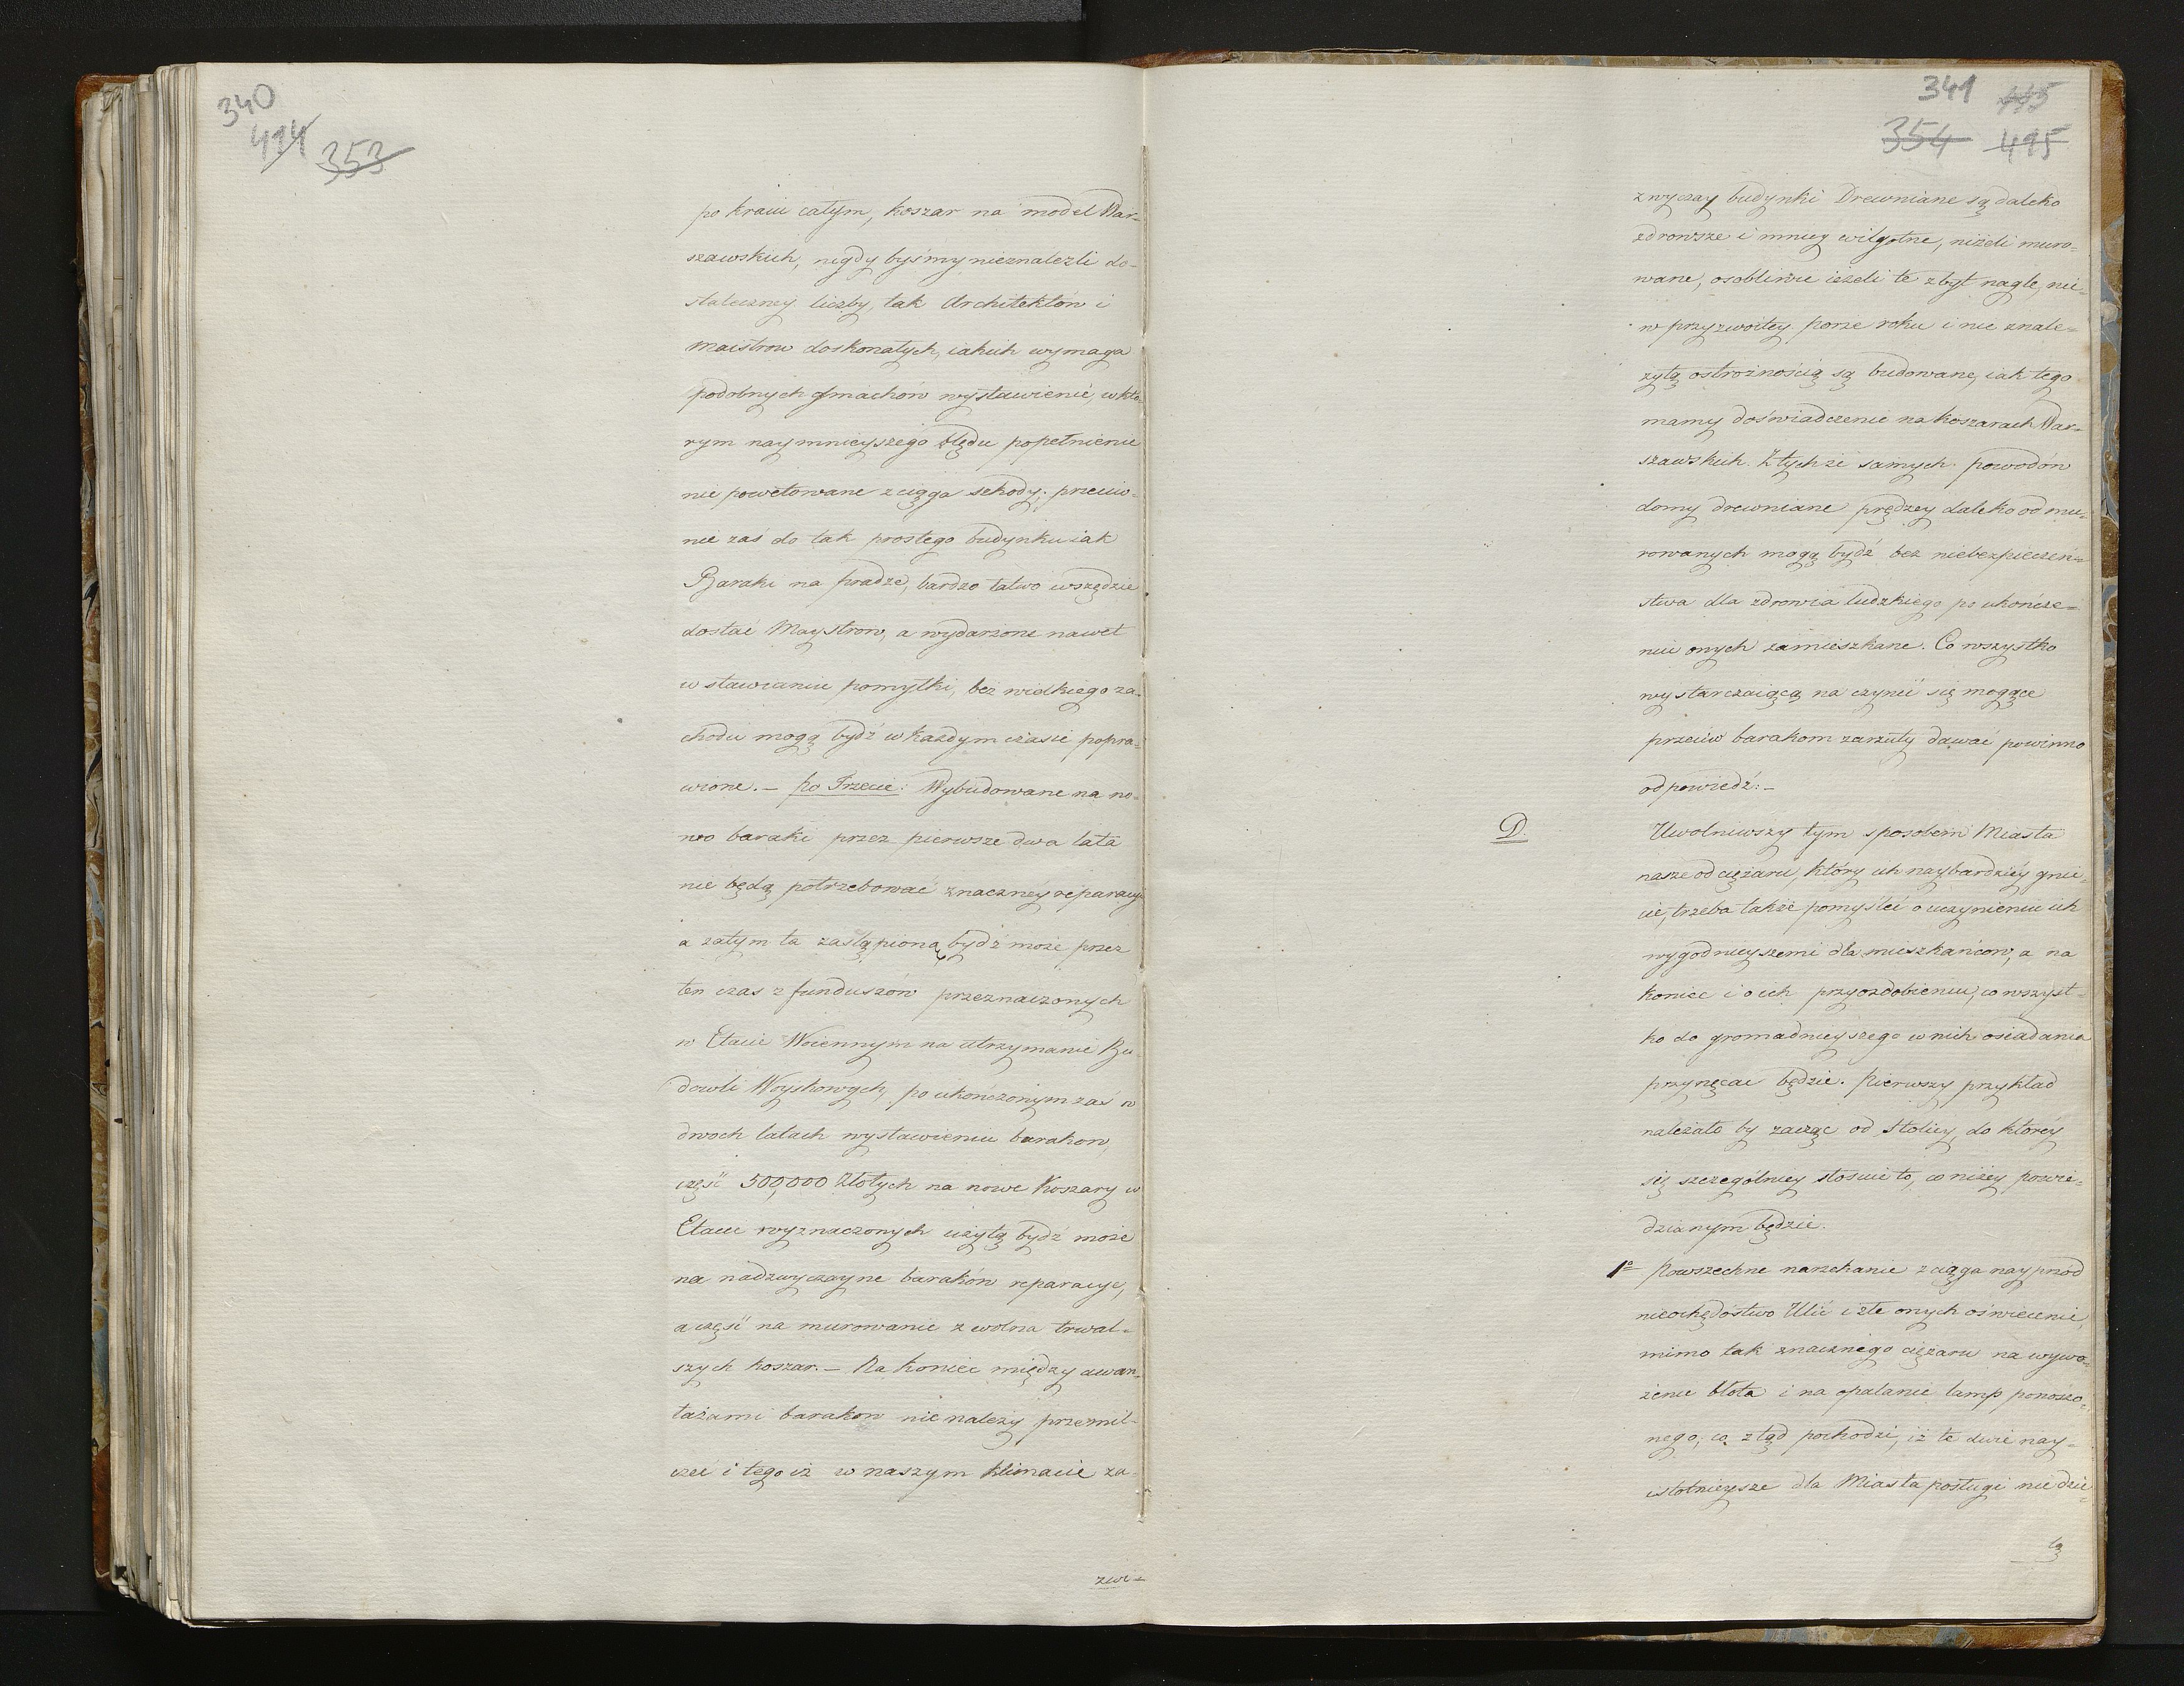 340
414
353
po kraiu całym, koszar na model War-
szawskich, nigdy byśmy nieznalezli do-
stateczney liczby, tak Architektów i
Maistrow doskonałych, iakich wymaga
podobnych gmachów wystawienie, w któ-
rym naymnieyszego błędu popełnienie
nie powetowane zciąga szkody; przeciw-
nie zaś do tak prostego budynku iak
Baraki na pradze, bardzo łatwo wszędzie
dostać Maystrow, a wydarzone nawet
w stawianiu pomyłki, bez wielkiego za-
chodu mogą bydź w każdym czasie popra-
wione. – po Trzecie: Wybudowane na no-
wo baraki przez pierwsze dwa lata
nie będą potrzebować znaczney reparacyi
a zatym ta zastąpioną bydź może przez
ten czas z funduszów przeznaczonych
w Etacie Woiennym na utrzymanie Bu-
dowli Woyskowych, po ukończonym zaś w
dwoch latach wystawieniu barakow,
część 500,000 Złotych na nowe Koszary w
Etacie wyznaczonych użytą bydź może
na nadzwyczayne baraków reparacye,
a część na murowanie zwolna trwal-
szych koszar. – Na koniec między awan-
tażami barakow nie należy przemil-
czeć i tego iż w naszym klimacie za-
zwi-
341 415
354 415
zwyczay budynki Drewniane są daleko
zdrowsze i mniey wilgotne, niżeli muro-
wane, osobliwie ieżeli te zbyt nagle, nie
w przyzwoitey porze roku i nie znale-
żytą ostrożnością są budowane, iak tego
mamy doświadczenie na koszarach War-
szawskich. Z tychże samych powodów
domy drewniane prędzey daleko od mu-
rowanych mogą bydź bez niebezpieczeń-
stwa dla zdrowia ludzkiego po ukończe-
niu onych zamieszkane. Co wszystko
wystarczaiącą na czynić się mogące
przeciw barakom zarzuty dawać powinno
odpowiedź: –
D.
Uwolniwszy tym sposobem Miasta
nasze od ciężaru, który ich naybardziey gnie-
cie, trzeba także pomyśleć o uczynieniu ich
wygodnieyszemi dla mieszkańcow, a na
koniec i o ich przyozdobieniu, co wszyst-
ko do gromadnieyszego w nich osiadania
przynęcać będzie. Pierwszy przykład
należało by zacząc od Stolicy, do którey
się szczególniey stosuie to, co niżey powie-
dzianym będzie.
1º Powszechne narzekanie zciąga nayprzod
nieochędostwo Ulic i złe onych oświecenie,
mimo tak znacznego ciężaru na wywo-
żenie błota i na opalanie lamp ponoszo-
nego, co ztąd pochodzi, iż te dwie nay-
istotnieysze dla Miasta posługi nie dzie-
lą